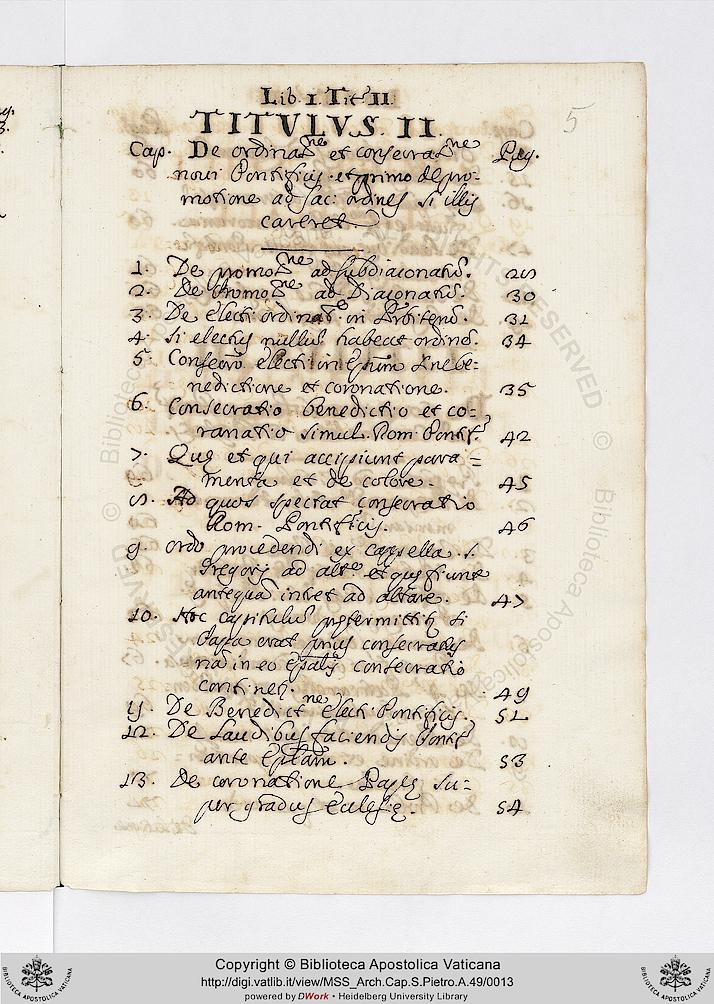 5
Lib. I. Tit II.
TITULVS. II.
Cap. De ordinat.ne et consecrat.ne Pag.
noui Pontificis. et primo de pro-
motione ad sac: ordines si illis
careret.
1. De promot.ne ad subdiaconatū. 29
2. De Promot.ne ad Diaconatū. 30
3. De Electi ordinat.e in Prbiterū. 31
4. Si electus nullū habeat ordinē. 34
5. Electi in Epūm
nedictione et coronatione. 35
6. Consecratio benedictio et co-
ranatio simul Rom. Pontif. 42
7. Quę et qui accipiunt para=
menta et de colore. 45
8. Ad quos spectat consecratio
Rom. Pontificis. 46
9. ordo procedendi ex capsella. s.
Gregorij ad alt.e et quę fiunt
antequā intret ad altare. 47
10. Hoc capitulū si
Papa erat prius consecratus
nā in eo consecratio
49
11. De Benedict.ne Electi Pontificis. 51
12. De Laudibus faciendis Pontif
ante Eplam. 53
13. De coronatione Papę su=
per gradus Ecclesię. 54
Copyright © Biblioteca Apostolica Vaticana
http://digi.vatlib.it/view/MSS_Arch.Cap.S.Pietro.A.49/0013
powered by DWork • Heidelberg University Library